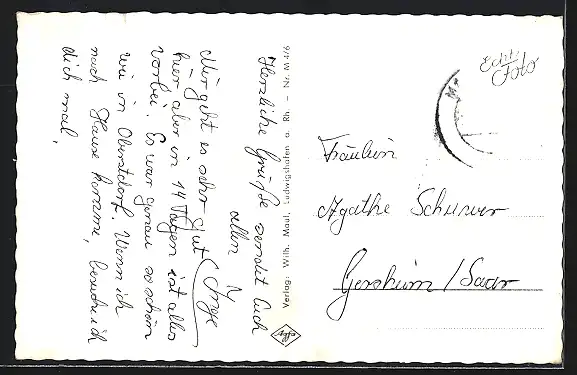 Herzliche Grüße sendet Euch
allen
Inge
Mir geht es sehr gut
hier aber in 14 Tagen ist alles
vorbei. Es war genau so schön
wie in Oberstdorf. Wenn ich
nach Hause komme, besuche ich
dich mal.
Verlag: Wilh. Maul, Ludwigshafen a. Rh. – Nr. M 4/6
Agfa
Echt
Foto
Fräulein
Agathe
Gersheim / Saar